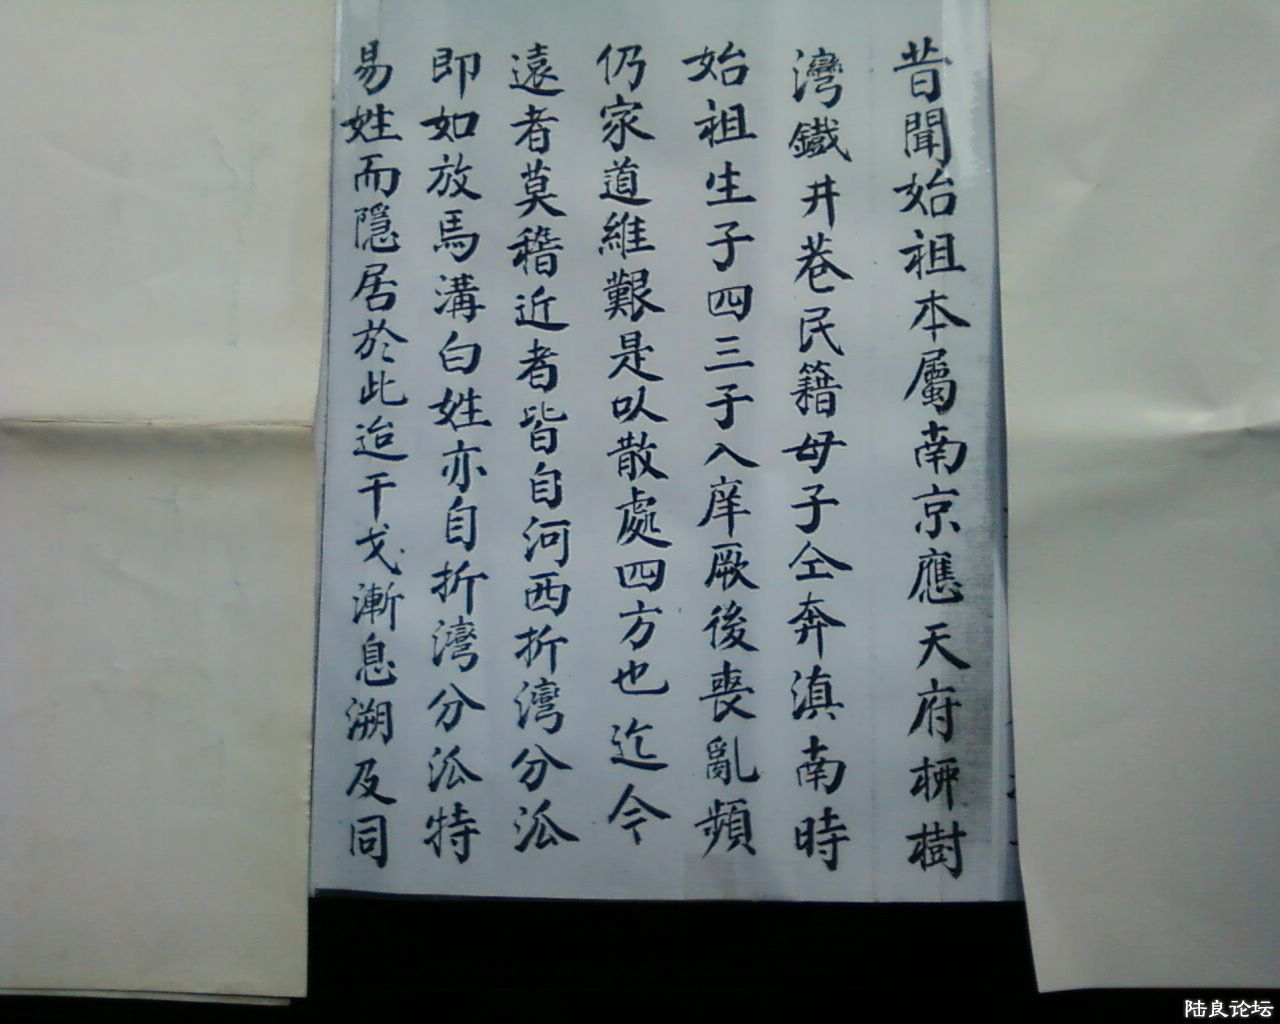 昔聞始祖本屬南京應天府柳樹
灣鐵井巷民籍母子仝奔滇南時
始祖生子四三子入庠厥後喪亂頻
仍家道維艱是以散處四方也迄今
遠者莫稽近者皆自河西折灣分派
即如放馬溝白姓亦自折灣分派特
易姓而隱居於此迨干戈漸息溯及同
陆良论坛